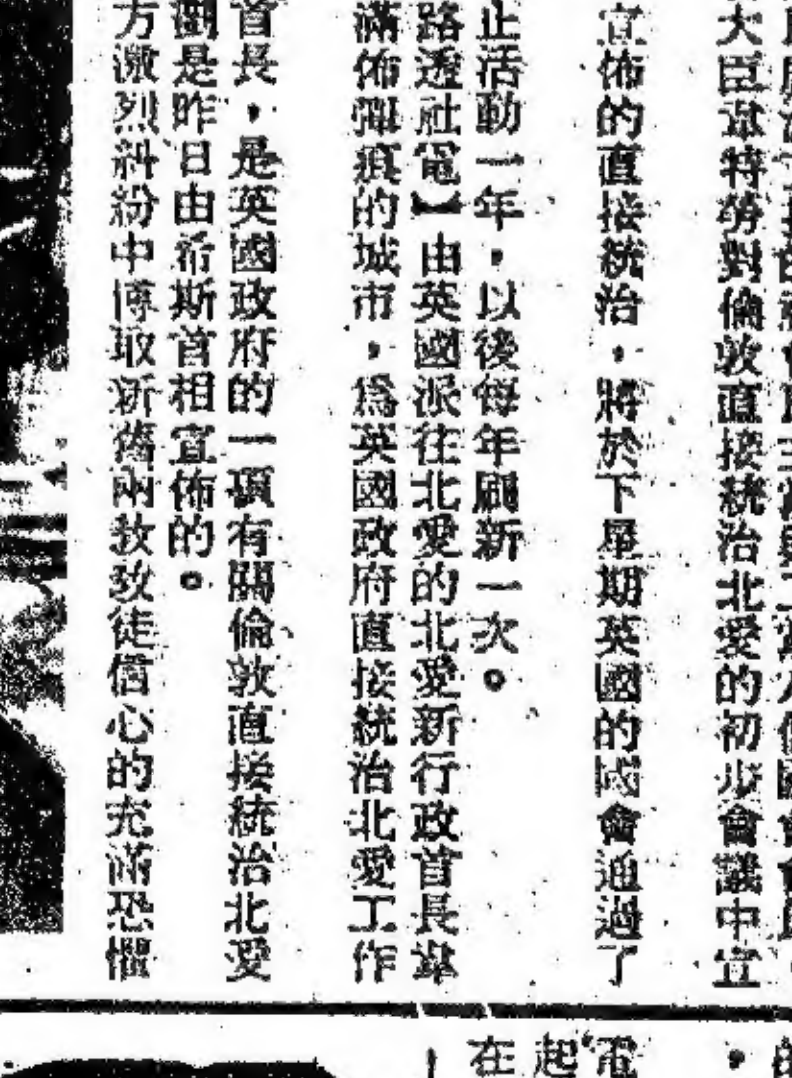 大臣韋特勞對倫敦直接統治北愛的初步會議中宣
宣佈的直接統治，將於下星期英國的國會通過了
止活動一年，以後每年刷新一次。
路透社電】由英國派往北愛的北愛新行政首長韋
滿佈彈痕的城市，爲英國政府直接統治北愛工作
首長，是英國政府的一項有關倫敦直接統治北愛
劃是昨日由希斯首相宣佈的。
方激烈糾紛中博取新舊兩教教徒信心的充滿恐懼
電
起
在